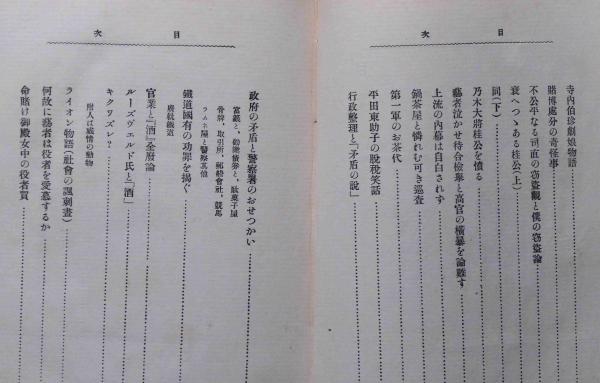 目次
寺内伯珍劇娘物語
賭博處分の奇怪事
不公平なる司直の窃盜觀と僕の窃盜論
衰へつゝある桂公(上)
同(下)
乃木大將桂公を憤る
藝者泣かせ待合檢擧と高官の橫暴を論難す
上流の内幕は自白されず
鍋茶屋と憐れむ可き巡査
第一軍のお茶代
平田東助子の脫稅笑話
行政整理と「矛盾の說」
目次
政府の矛盾と警察署のおせつかい
富籤と、勸業債券と、駄菓子屋
骨牌、取引所、郵船會社、競馬
ラムネ屋と警察其他
鐵道國有の功罪を揭ぐ
廢餓鐵道
官業と『酒』全廢論
ルーズヴエルド氏と「酒」
キクワズレ?
附人は感情の動物
ライオン物語(社會の諷刺畫)
何故に藝者は役者を愛慕するか
命賭け御殿女中の役者買